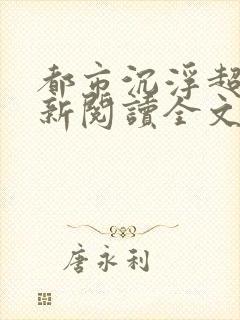 都市沉浮超
新閱讀全文
唐永利